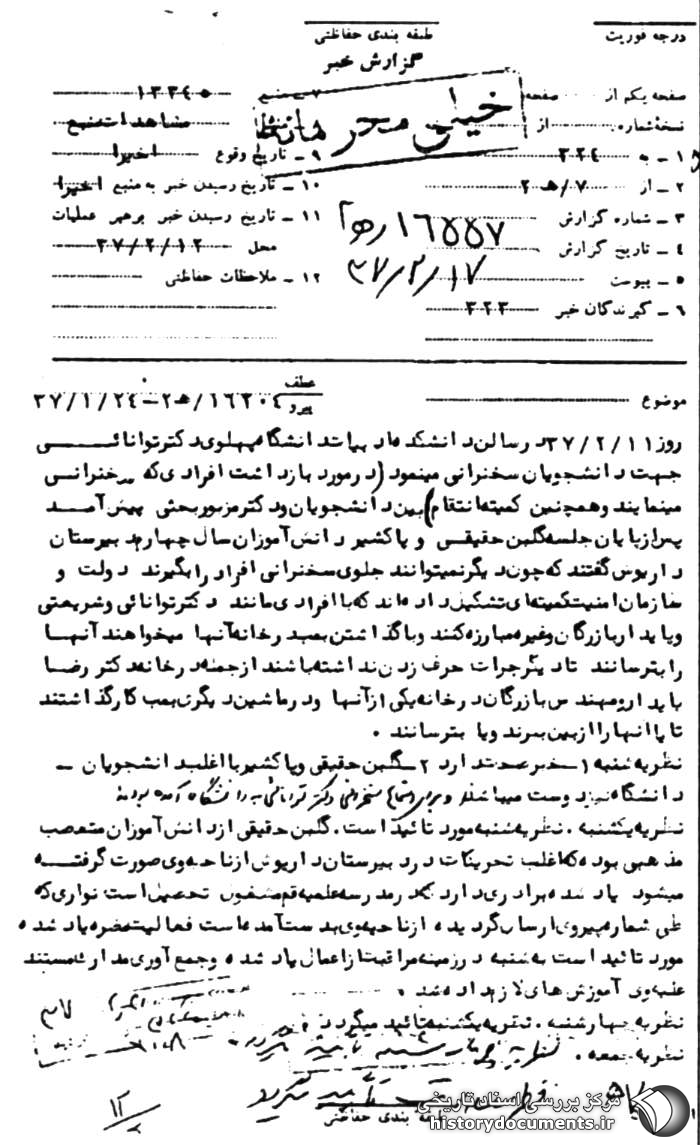 درجه فوریت
طبقه بندی حفاظتی
گزارش خبر
خیلی محرمانه
صفحه یکم از صفحه
نسخه شماره از
۱ ـ به ۳۲۴
۲ ـ از ۷/هـ ۲
۳ ـ شماره گزارش ۱۶۵۵۷/هـ۲
۴ ـ تاریخ گزارش ۳۷/۲/۱۷
۵ ـ پیوست
۶ ـ گیرندگان خبر ۳۲۳
۷ ـ منبع ۱۳۳۴۵
مشاهدات منبع
۹ ـ تاریخ وقوع اخیرا
۱۰ ـ تاریخ رسیدن خبر به منبع اخیرا
۱۱ ـ تاریخ رسیدن خبر برهبر عملیات
محل ۳۷/۲/۱۲
۱۲ ـ ملاحظات حفاظتی
موضوع
عطف
پیرو ۱۶۲۰۴/هـ۲ - ۳۷/۱/۲۴
روز ۳۷/۲/۱۱ در سالن دانشکده ادبیات دانشگاه پهلوی دکتر توانائی
جهت دانشجویان سخنرانی مینمود (در مورد بازداشت افرادی که سخنرانی
مینمایند و همچنین کمیته انتقام) بین دانشجویان و دکتر مزبور بحثی پیش آمد
پس از پایان جلسه گلبن حقیقی و پاکشیر دانش آموزان سال چهارم دبیرستان
داریوش گفتند که چون دیگر نمیتوانند جلوی سخنرانی افراد را بگیرند دولت و
سازمان امنیت کمیته ای تشکیل داده اند که با افرادی مانند دکتر توانائی و شریعتی
و پایدار بازرگان و غیره مبارزه کنند و با گذاشتن بمب در خانه آنها میخواهند آنها
را بترسانند تا دیگر جرات حرف زدن نداشته باشند از جمله در خانه دکتر رضا
پایدار و مهندس بازرگان در خانه یکی از آنها و در ماشین دیگری بمب کار گذاشتند
تا یا آنها را از بین ببرند و یا بترسانند .
نظریه شنبه ۱ـ خبر صحت دارد ۲ـ گلبن حقیقی و پاکشیر با اغلب دانشجویان ـ
دانشگاه نیز دوست میباشند و برای استماع سخنرانی دکتر توانائی به دانشگاه آمده بودند
نظریه یکشنبه . نظریه شنبه مورد تائید است . گلبن حقیقی از دانش آموزان متعصب
مذهبی بوده که اغلب تحریکات در دبیرستان داریوش از ناحیه وی صورت گرفته
میشود یاد شده برادری دارد که در مدرسه علمیه قم مشغول تحصیل است نواری که
طی شماره پیروی ارسال گردیده از ناحیه وی بدست آمده است فعالیت مضره یاد شده
مورد تائید است به شنبه در زمینه مراقبت از اعمال یاد شده و جمع آوری مدارک مستند
علیه وی آموزش های لازم داده شد .
نظریه چهارشنبه . نظریه یکشنبه تائید میگردد
نظریه جمعه . نظریه چهارشنبه تائید میگردد
طبقه بندی حفاظتی
مرکز بررسی اسناد تاریخی
historydocuments.ir